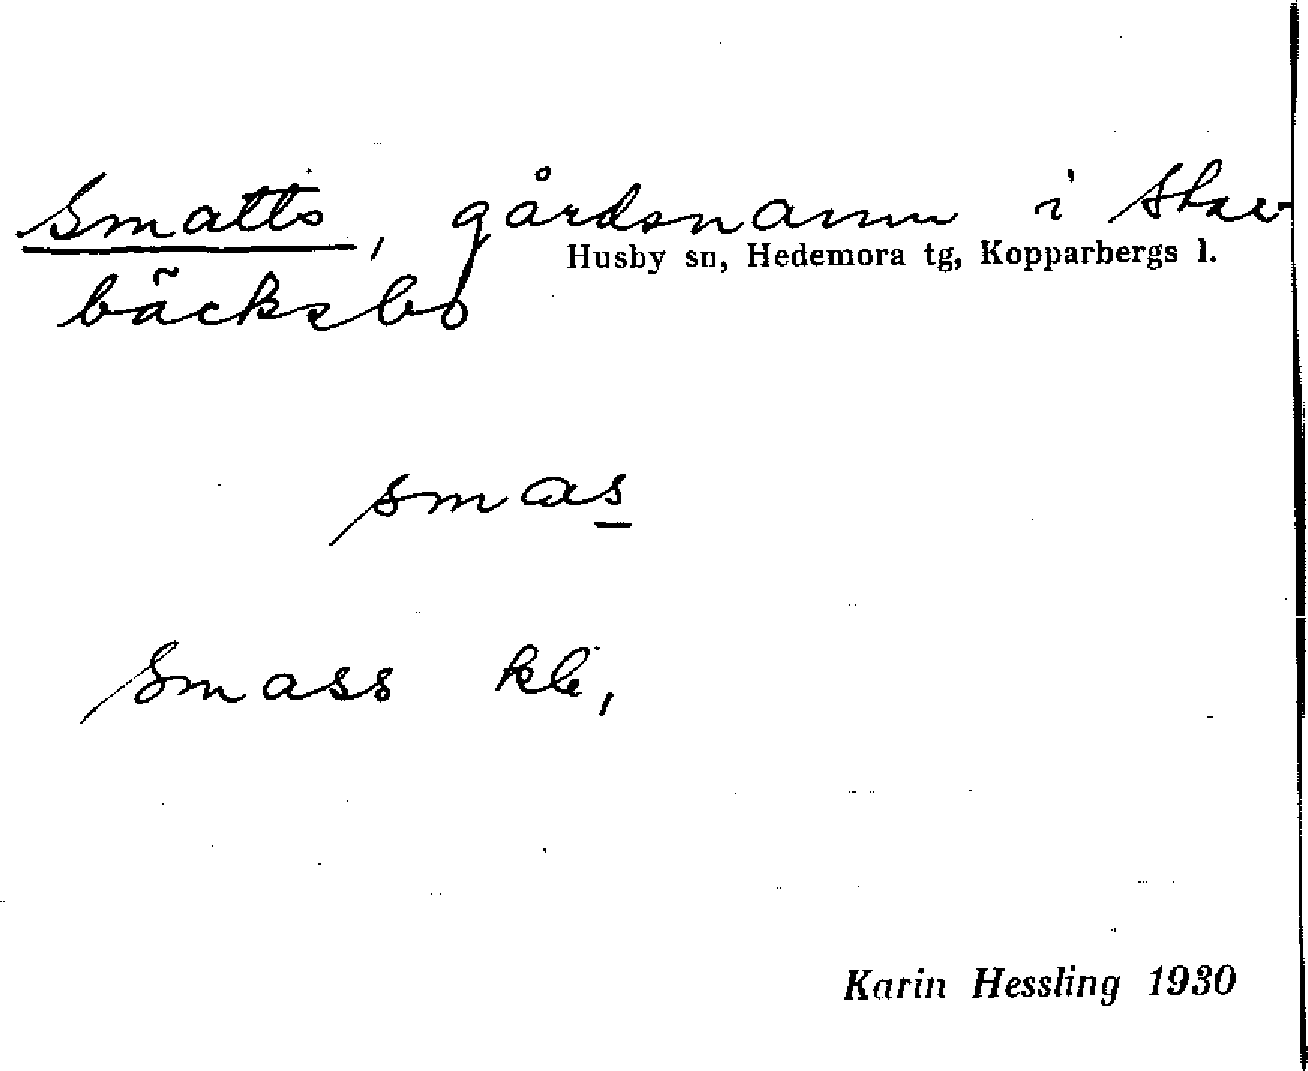 Smatts, gårdsnamn i Stav-
Husby sn, Hedemora tg, Kopparbergs l.
bäcksbo
smas
Smass
Karin Hessling 1930